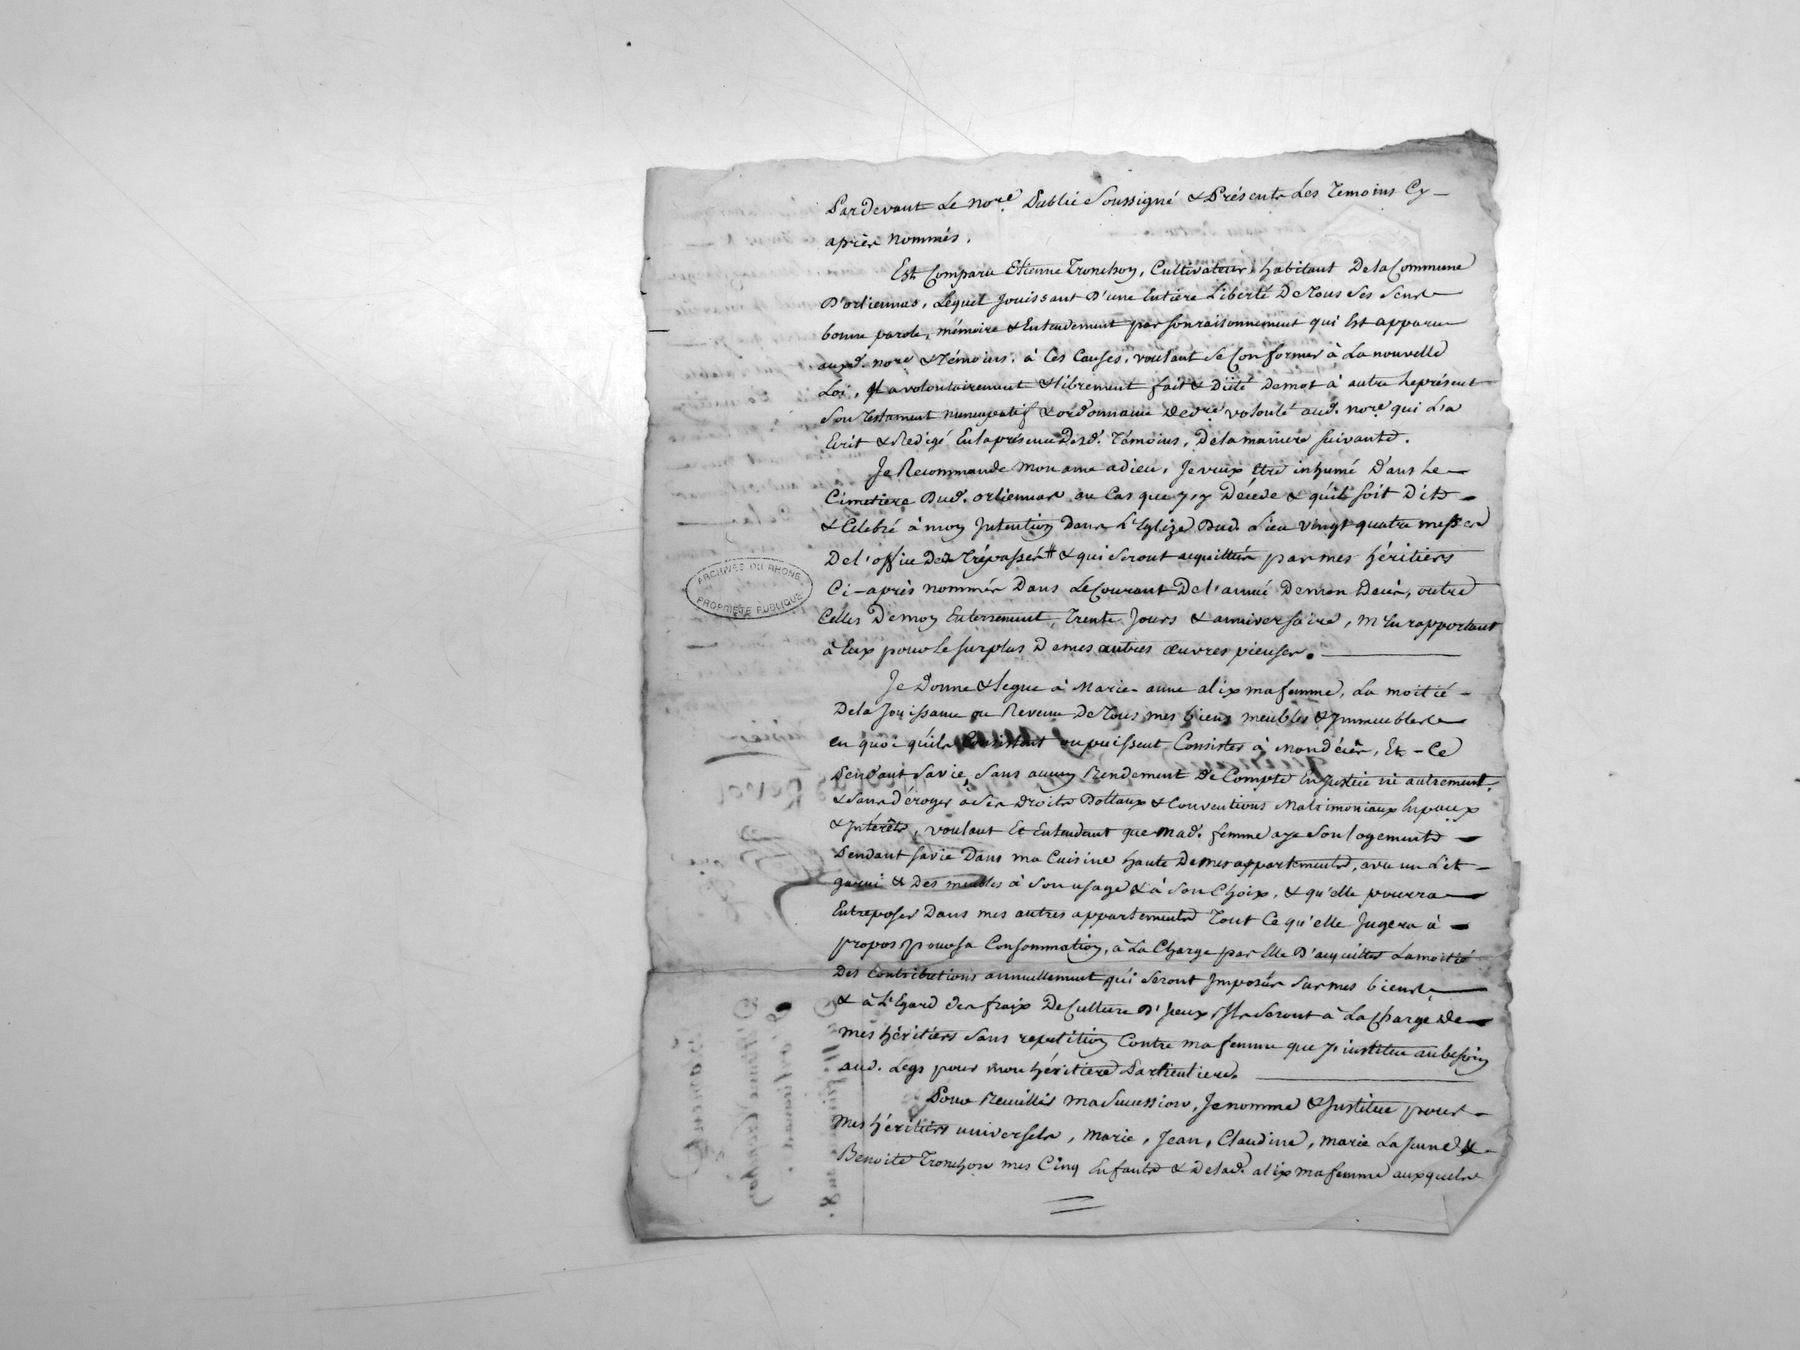 Pardevant Le no.re Public Soussigné & Présents Les Temoins Cy –
après nommés.
Est Comparu Etienne Tronchon, Cultivateur habitant De la Commune
D'orliennas, Lequel Jouissant D'une Entière Liberté De Tous Ses Sens
bonne parole, mémoire & Entendement par son raisonnement qui Est apparu
auxd. no.re & Témoins, à Ces Causes, voulant Se Conformer à La nouvelle
Loi, Il a volontairement & librement fait & Dicté De mot à autre le présent
Son Testament nuncupatif & ordonnance De d.re volonté aud. no.re qui L'a
Ecrit & Redigé En la présence Desd. Témoins, De la maniere Suivante.
Je Recommande Mon ame a dieu, Je veux Etre inhumé Dans Le
Cimetiere Dud. orliennas au Cas que J'y Décede & qu'il Soit Dit
& Celebré à mon Intention Dans L'Eglize Dud. Lieu vingt quatre messes
De l'office Des Trépassés # & qui Seront acquittés par mes héritiers
Ci-après nommés Dans Le Courant De l'année De mon Décès, outre
Celles De mon Enterrement, Trente Jours & anniversaire, M'En rapportant
à Eux pour le surplus De mes autres œuvres pieuses.
Je Donne & legue à Marie-anne alix ma femme, La moitié –
De la Jouissance ou Revenu De Tous mes biens meubles & Immeubles
en quoi qu'ils Consistent ou puissent Consister à Mon décès, Et – Ce
Pendant Sa vie, Sans aucun Rendement De Compte En Justice ni autrement,
& Sans déroger à Ses Droits Dottaux & Conventions Matrimoniaux
& Intérêts, voulant Et Entendant que Mad. femme aye Son logement –
Pendant Sa vie Dans ma Cuisine haute De mes appartements, avec un Lit –
garni & Des meubles à Son usage & à Son Choix, & qu'elle pourra
Entreposer Dans mes autres appartements Tout Ce qu'elle Jugera à –
propos pour sa Consommation, à La Charge par Elle D'acquitter La moitié
Des Contributions annuellement qui Seront Imposés Sur mes biens,
& à L'Egard des fraix De Culture D'Iceux, Ils Seront à La Charge De
Mes héritiers Sans repetition Contre ma femme que J'institue au besoin
aud. Legs pour mon héritiere Particuliere.
Pour Recuillir ma Succession, Je nomme & Institue pour –
Mes héritiers universels, Marie, Jean, Claudine, Marie La Jeune & –
Benoite Tronchon mes Cinq Enfants & De lad. alix ma femme auxquels
ARCHIVES DU RHONE
PROPRIETE PUBLIQUE